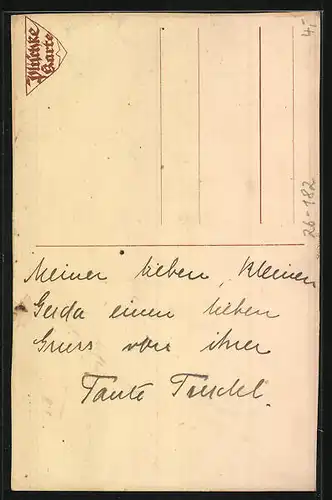 Meiner lieben, kleinen
Gerda einen lieben
Gruss von ihrer
Tante Trudel.
Karte
4,-
26-182